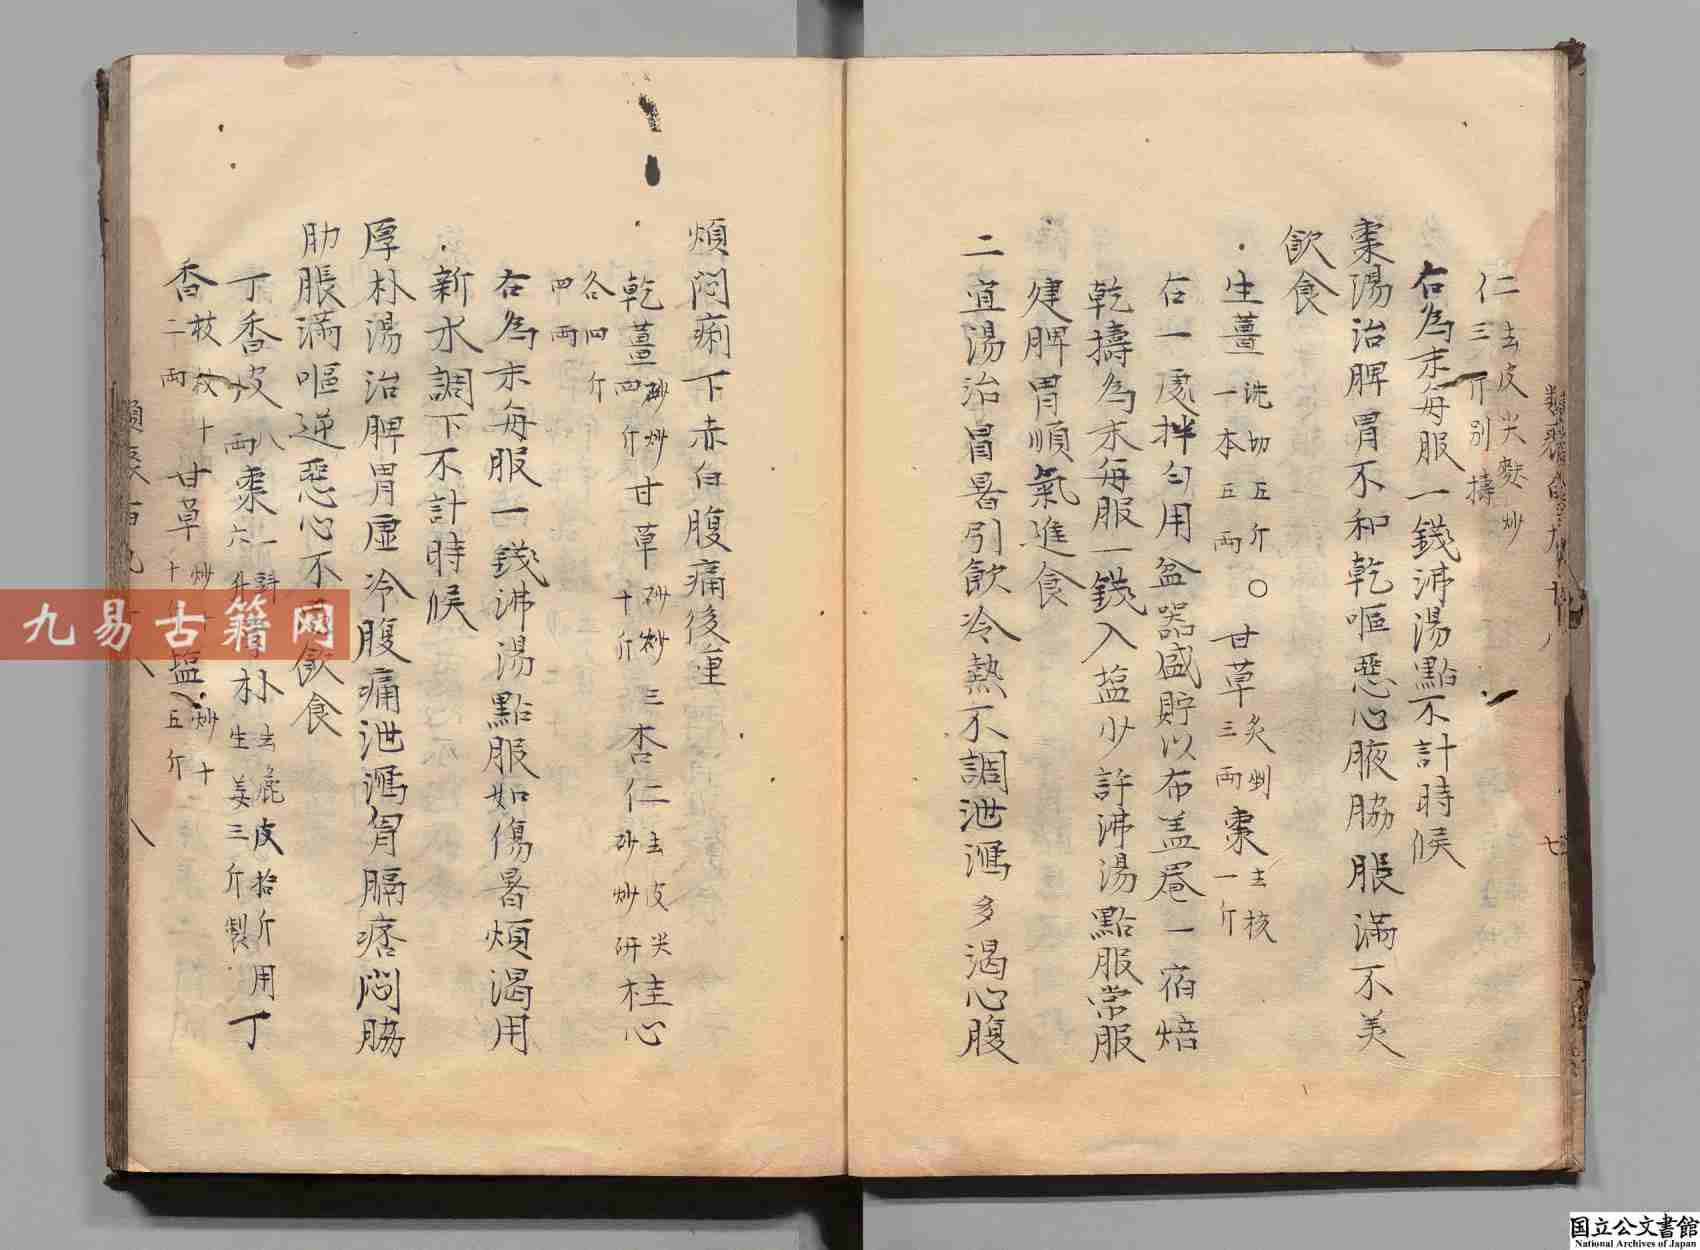 仁去皮尖麩炒三斤別擣
右為末每服一錢沸湯點不計時候
棗湯治脾胃不和乾嘔惡心腋脇脹滿不美
飲食
生薑洗切五斤一本五兩○甘草炙剉三兩棗去核一斤
右一處拌勻用盆器盛貯以布盖罨一宿焙
乾擣為末每服一錢入塩少許沸湯點服常服
健脾胃順氣進食
二宜湯治冒暑引飲冷熱不調泄瀉多渴心腹
煩悶痢下赤白腹痛後重
乾薑砂炒四斤甘草砂炒十斤三杏仁去皮尖砂炒研桂心
各四斤四兩
右為末每服一錢沸湯點服如傷暑煩渴用
新水調下不計時候
厚朴湯治脾胃虛冷腹痛泄瀉胷膈痞悶脇
肋脹滿嘔逆惡心不飲食
丁香皮八兩棗一斗六升朴去麁皮拾斤用生姜三斤製丁
香枝枝十二兩甘草炒十塩炒十五斤
九易古籍网
国立公文書館
National Archives of Japan